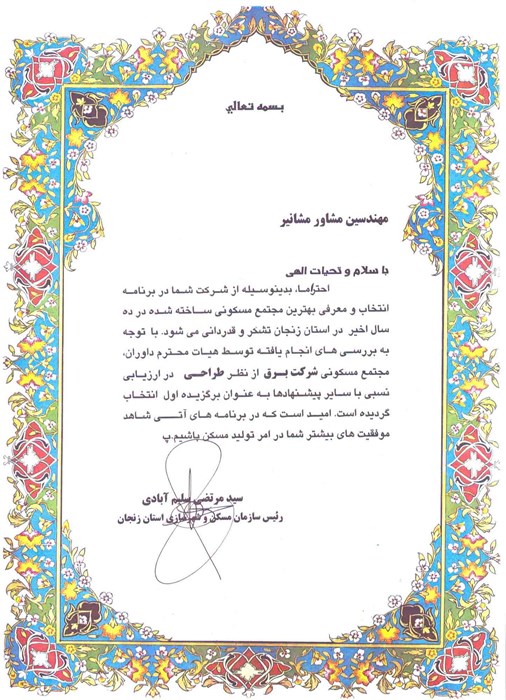 بسمه تعالی
مهندسین مشاور مشانیر
با سلام و تحیات الهی
احتراما، بدینوسیله از شرکت شما در برنامه
انتخاب و معرفی بهترین مجتمع مسکونی ساخته شده در ده
سال اخیر در استان زنجان تشکر و قدردانی می شود. با توجه
به بررسی های انجام یافته توسط هیات محترم داوران،
مجتمع مسکونی شرکت برق از نظر طراحی در ارزیابی
نسبی با سایر پیشنهادها به عنوان برگزیده اول انتخاب
گردیده است. امید است که در برنامه های آتی شاهد
موفقیت های بیشتر شما در امر تولید مسکن باشیم.پ
سید مرتضی سلیم آبادی
رئیس سازمان مسکن و شهرسازی استان زنجان